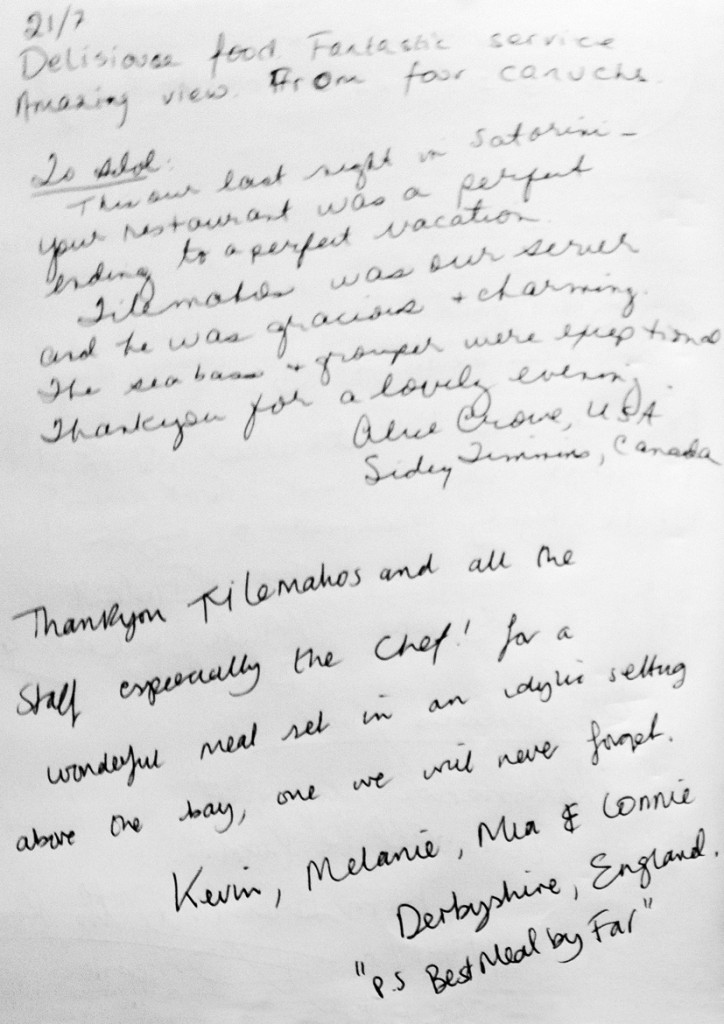 21/7
Delisiouse food. Fantastic service
Amazing view. From four canucks.
To
This our last night in Satorini -
your restaurant was a perfect
ending to a perfect vacation.
Tilemahos was our server
and he was gracious + charming.
The sea bass + grouper were exceptional
Thankyou for a lovely evening.
Crowe, USA.
Timmins, Canada
Thankyou Tilemahos and all the
Staff especially the Chef! for a
wonderful meal set in an idylic setting
above the bay, one we will never forget.
Kevin, Melanie, Mia & Connie
Derbyshire, England.
"p.s Best Meal by Far"